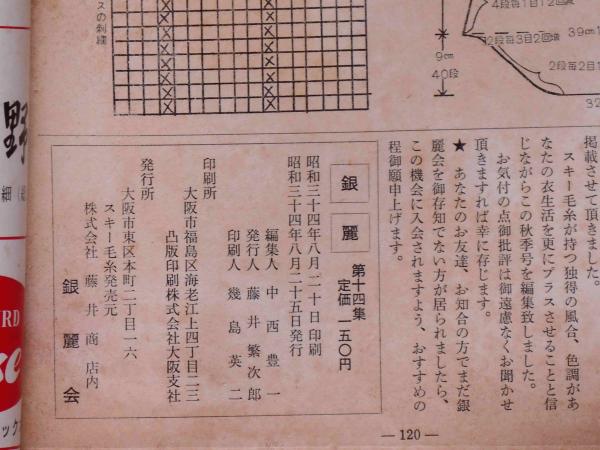 スの刺繡
9cm
40段
4段毎1目12回
2段毎3目2回
39cm
2段毎2目
32
掲載させて頂きました。
スキー毛糸が持つ独得の風合、色調があ
なたの衣生活を更にプラスさせることと信
じながらこの秋季号を編集致しました。
お気付の点御批評は御遠慮なくお聞かせ
頂きますれば幸に存じます。
★ あなたのお友達、お知合の方でまだ銀
麗会を御存知でない方が居られましたら、
この機会に入会されますよう、おすすめの
程御願申上げます。
銀麗 第十四集
定価 一五〇円
昭和三十四年八月二十日印刷
昭和三十四年八月二十五日発行
編集人 中西豊一
発行人 藤井繁次郎
印刷人 幾島英二
印刷所
大阪市福島区海老江上四丁目二三
凸版印刷株式会社大阪支社
発行所
大阪市東区本町二丁目一六
スキー毛糸発売元
株式会社 藤井商店内
銀麗会
—120—
野
細
RD
se
ック